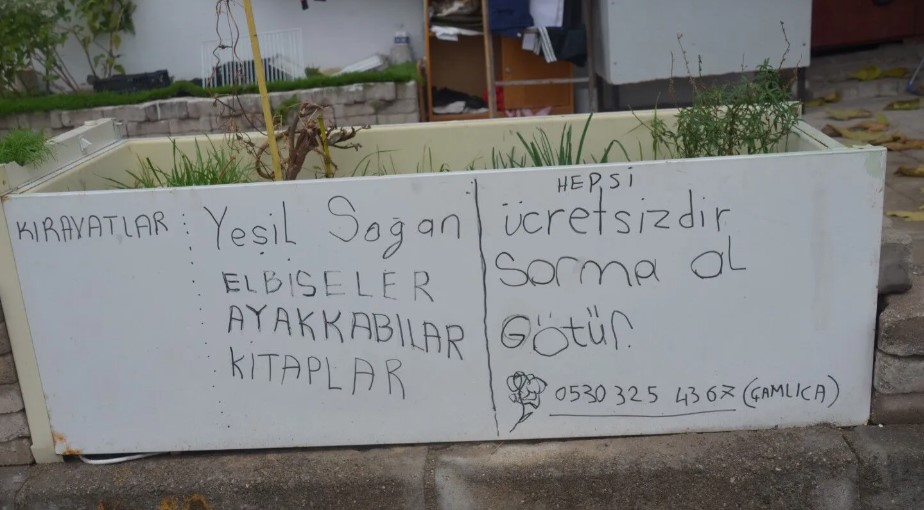 KIRAVATLAR :
Yeşil Soğan
ELBİSELER
AYAKKABILAR
KİTAPLAR
HEPSİ
ücretsizdir
Sorma al
Götür.
0530 325 43 67 (ÇAMLICA)